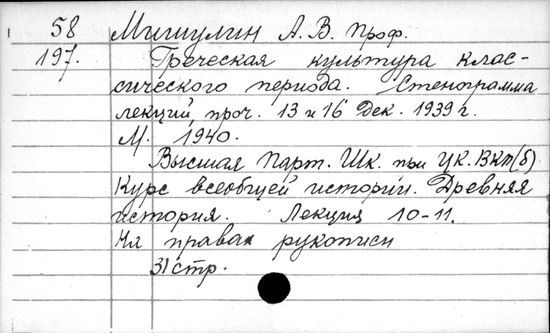 58 Мишулин А. В. проф.
197. Греческая культура клас-
сического периода. Стенограмма
лекций, проч. 13 и 16 Дек. 1939 г.
М. 1940.
Высшая Парт. Шк. при ЦК. ВКП(б)
Курс всеобщей истории. Древняя
история. Лекция 10-11.
На правах рукописи
31 стр.